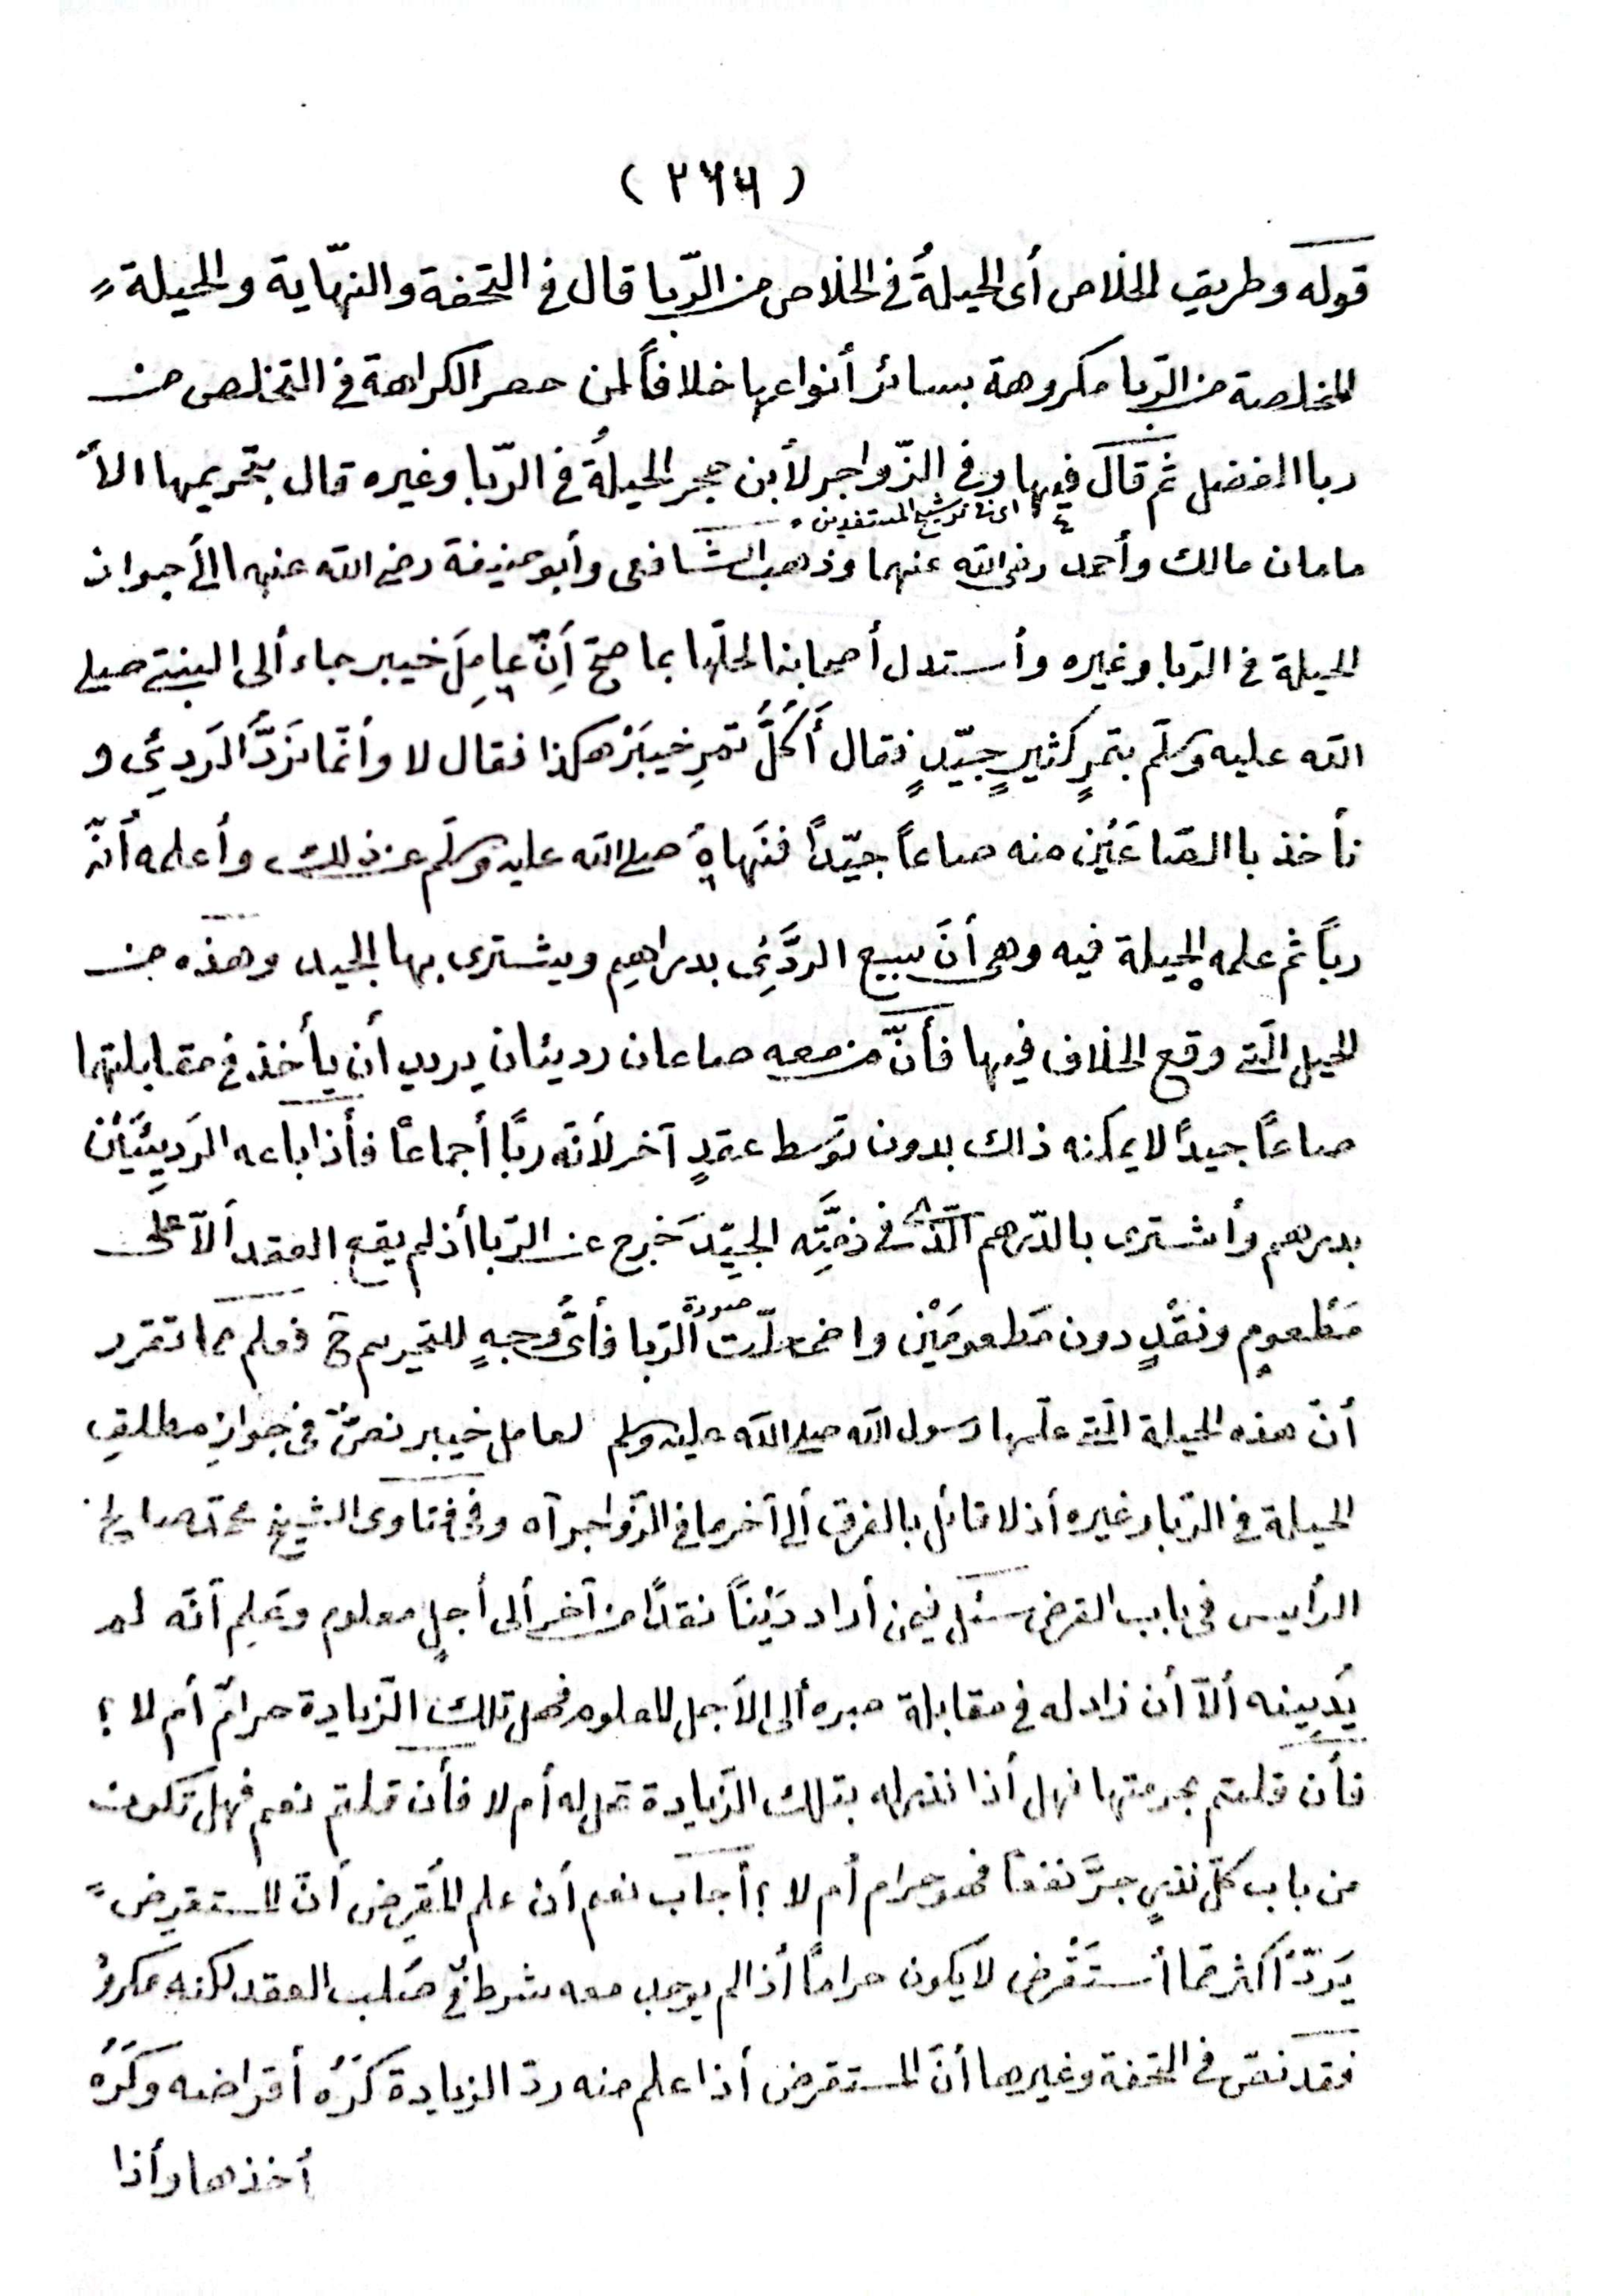 ( ٢٦٦ )
قوله وطريق الخلاص أى الحيلةُ فى الخلاص من الرّبا قال فى التحفة والنهّاية والحيلة
المخلصة من الرّبا مكروهة بسائر أنواعها خلافاً لمن حصر الكراهة فى التخلص من
ربا الفضل ثم قالَ فيها وفى الزّواجر لأبن حجر الحيلةُ فى الرّبا وغيره قال بتحريمها الأ
اى فا ترشيح المستفدين
مامان مالك وأحمد رضى الله عنهما وذهب الشافعى وأبو حنيفة رضى الله عنهما الى جواز
الحيلة فى الرّبا وغيره وأستدل أصحابنا لحلّها بما صحّ أَنّ عامِلَ خيبر جاء ألى النبىّ صلى
الله عليه وسلّم بتمرٍ كثيرٍ جيّدٍ فقال أَكُلُّ تمرِ خيبَرْ هكذا فقال لا وأنّما نَرَدُّ الرَدِئى و
نأخذ باالصّاعَيْن منه صاعاً جيّداً فنَهاهُ صلى الله عليه وسلّم عن ذلك وأعلمه أنّه
رباً ثم علمه الحيلة فيه وهى أنَ يبيع الردَّئِى بدراهِم ويشترى بها الجيد وهذه من
الحيل الّتى وقع الخلاف فيها فأنّ من معه صاعان رديئان يريد أن يأخذ فى مقابلتهما
صاعًا جيدًا لا يمكنه ذالك بدون توَسط عقدٍ آخر لأنّه ربًا أجماعًا فأذا باعه الرَدِيئَيْن
بدرهم وأشترى بالدّرهم الّذى فى ذمَّتِه الجيِّدَ خَرج عن الرّبا أذ لم يقع العقد ألاّ على
مَطْعومٍ ونقْدٍ دون مَطعومَيْن واضمحلّتْ صورة الرّبا فأىُّ وجهٍ للتحريم ح فعلم مما تقرر
أنّ هذه الحيلة الّتى علّمها رسول الله صلى الله عليه وسلم لعامل خيبر نصٌّ فى جوازِ مطلقِ
الحيلة فى الرّبا وغيره أذ لا قائل بالفرق ألى آخر ما فى الزّواجر آه وفى فتاوى الشيخ محمّد صالح
الرأيس فى باب القرض سئل فيمن أراد دَيْناً نقدًا من آخر ألى أجلٍ معلوم وعَلِم أنّه لم
يُدِينه ألاّ أن زاد له فى مقابلة صبره ألى الأجل المعلوم فهل تلك الزّيادة حرامٌ أم لا ؟
فأن قلتم بحرمتها فهل أذا نذر له بتلك الزّيادة تحل له أم لا فأن قلتم نعم فهل تكون
من باب كلّ نذرٍ جرَّ نفعاً فهو حرام أم لا ؟ أجاب نعم أن علم المُقرِض أنّ المستقرِض
يَردّ أكثر ممّا أستَقْرض لا يكون حرامًا أذا لم يوجد معه شرط فى صَلب العقد لكنه مكروهٌ
فقد نصّ فى التحفة وغيرها أنّ المستقرض أذا علم منه ردّ الزيادة كَرُه أقراضه وكَرُه
أخذها وأذا